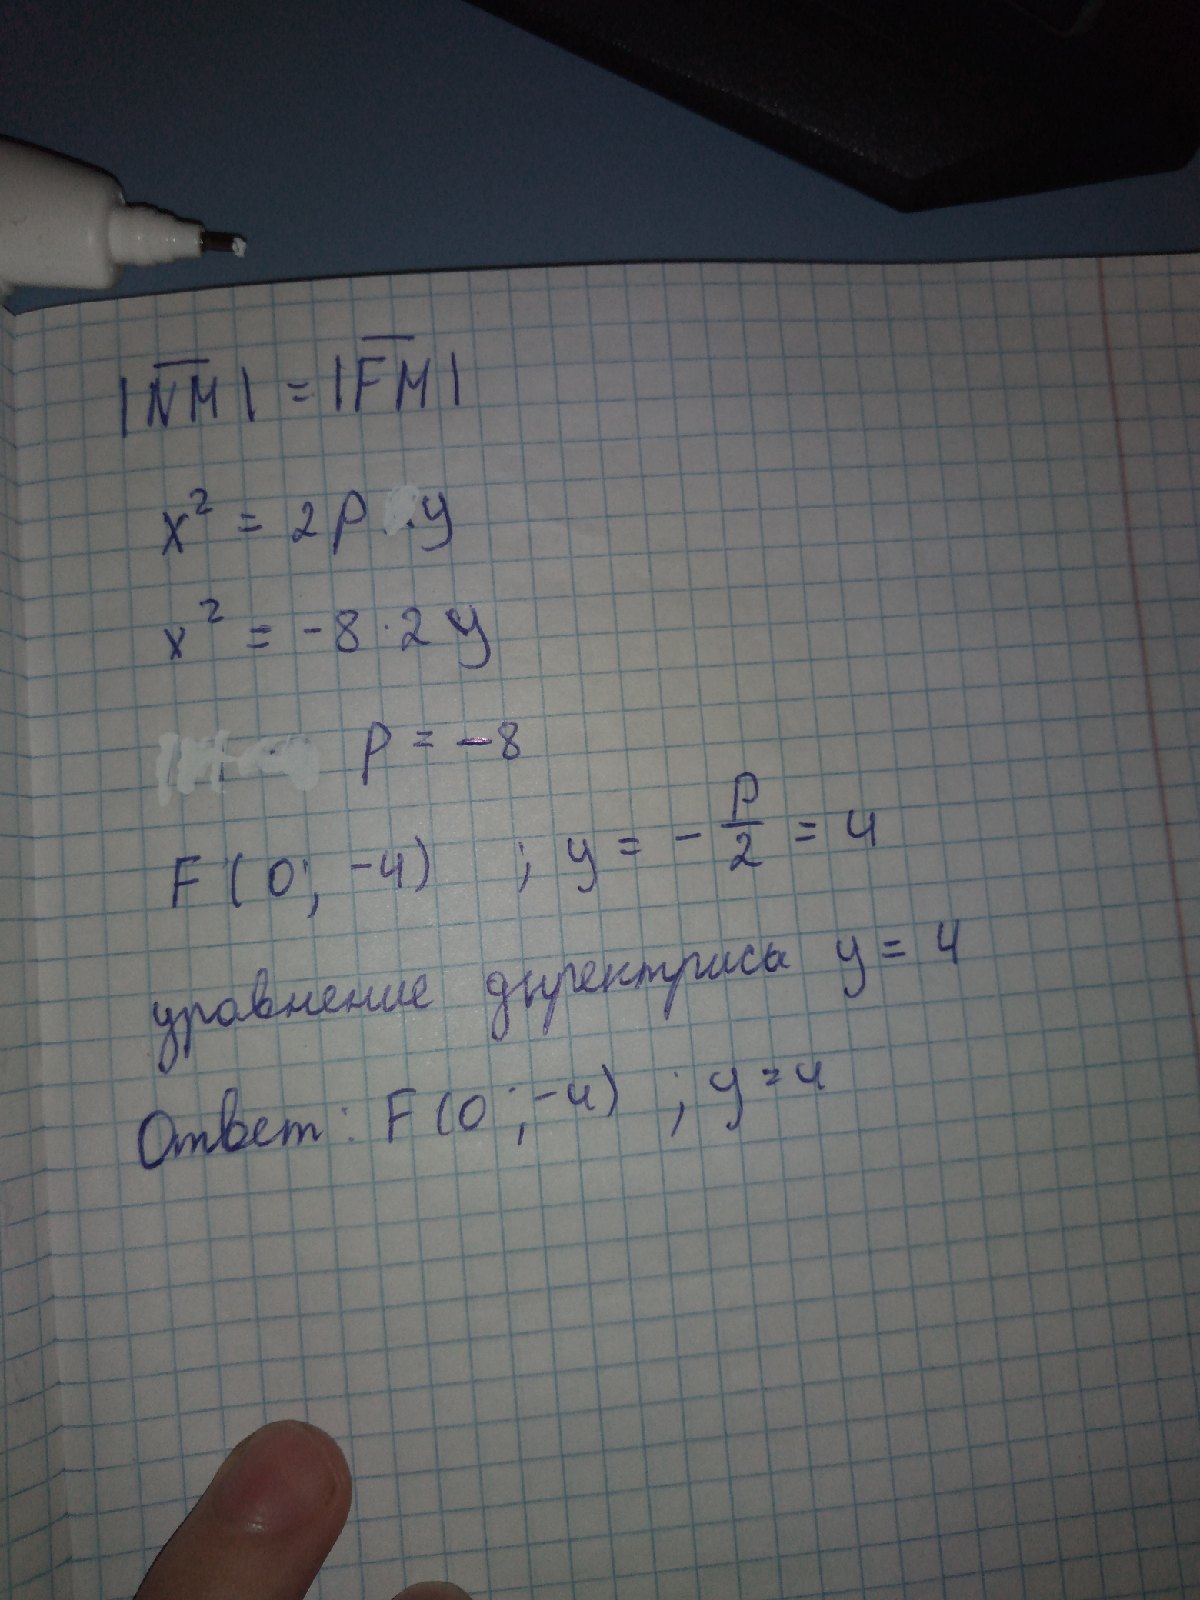 |N̅M̅| = |F̅M̅|
x² = 2p · y
x² = -8 · 2y
p = -8
F (0; -4) ; y = - p/2 = 4
уравнение директрисы y = 4
Ответ: F (0; -4) ; y = 4